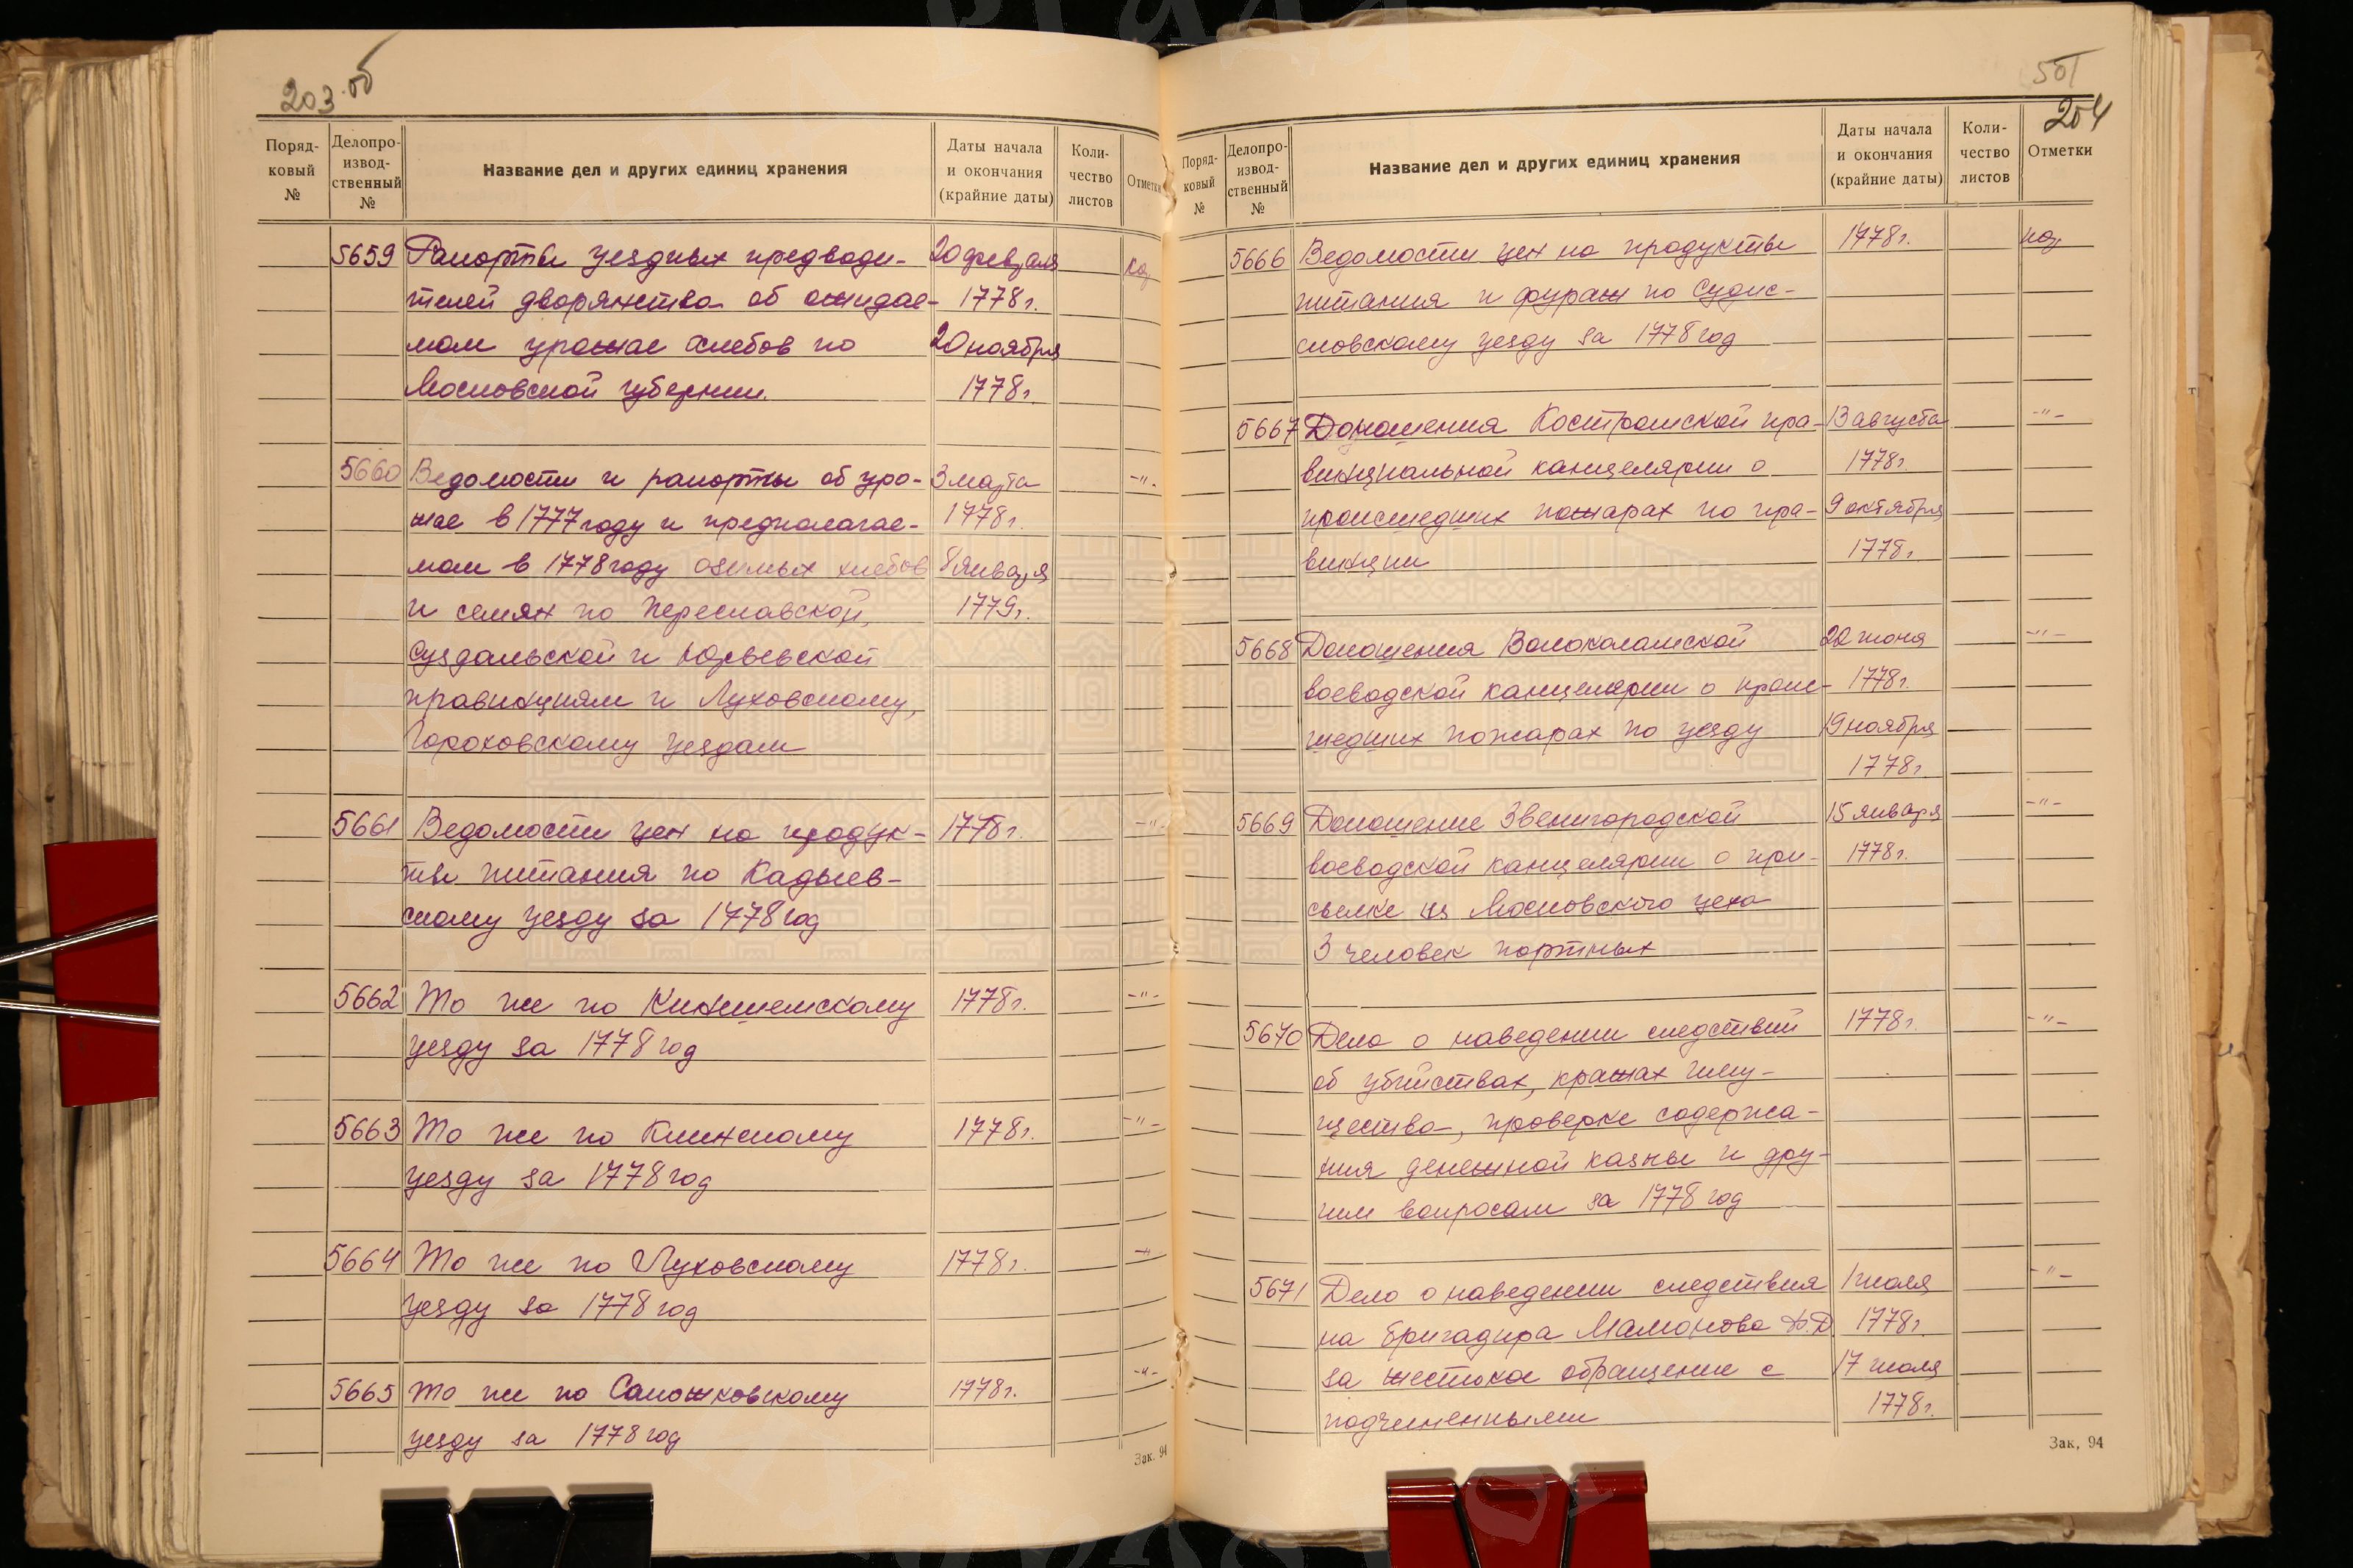 203 об
Поряд-
ковый
№
Делопро-
извод-
ственный
№
Название дел и других единиц хранения
Даты начала
и окончания
(крайние даты)
Коли-
чество
листов
Отметки
5659 Рапорты уездных предводи- 20 февраля
телей дворянства об ожидае- 1778 г.
мом урожае хлебов по 20 ноября
Московской губернии. 1778 г.
5660 Ведомости и рапорты об уро- 3 марта -"-
жае в 1777 году и предполагае- 1778 г.
мом в 1778 году озимых хлебов 8 января
и семян по Переславской, 1779 г.
Суздальской и Юрьевской
провинциям и Луховскому,
Гороховскому уездам
5661 Ведомости цен на продук- 1778 г. -"-
ты питания по Кадыев-
скому уезду за 1778 год
5662 То же по Кинешемскому 1778 г. -"-
уезду за 1778 год
5663 То же по Клинскому 1778 г. -"-
уезду за 1778 год
5664 То же по Луховскому 1778 г. -"-
уезду за 1778 год
5665 То же по Сапожковскому 1778 г. -"-
уезду за 1778 год
Зак. 94
501
204
Поряд-
ковый
№
Делопро-
извод-
ственный
№
Название дел и других единиц хранения
Даты начала
и окончания
(крайние даты)
Коли-
чество
листов
Отметки
5666 Ведомости цен на продукты 1778 г.
питания и фураж по Судис-
ловскому уезду за 1778 год
5667 Доношения Костромской про- 13 августа -"-
винциальной канцелярии о 1778 г.
происшедших пожарах по про- 9 октября
винции 1778 г.
5668 Доношения Волоколамской 22 июня -"-
воеводской канцелярии о проис- 1778 г.
шедших пожарах по уезду 19 ноября
1778 г.
5669 Доношение Звенигородской 15 января -"-
воеводской канцелярии о при- 1778 г.
сылке из Московского цеха
3 человек портных
5670 Дело о наведении следствий 1778 г. -"-
об убийствах, кражах иму-
щества, проверке содержа-
ния денежной казны и дру-
гим вопросам за 1778 год
5671 Дело о наведении следствия 1 июля -"-
на бригадира Мамонова 1778 г.
за жестокое обращение с 17 июля
подчиненными 1778 г.
Зак. 94